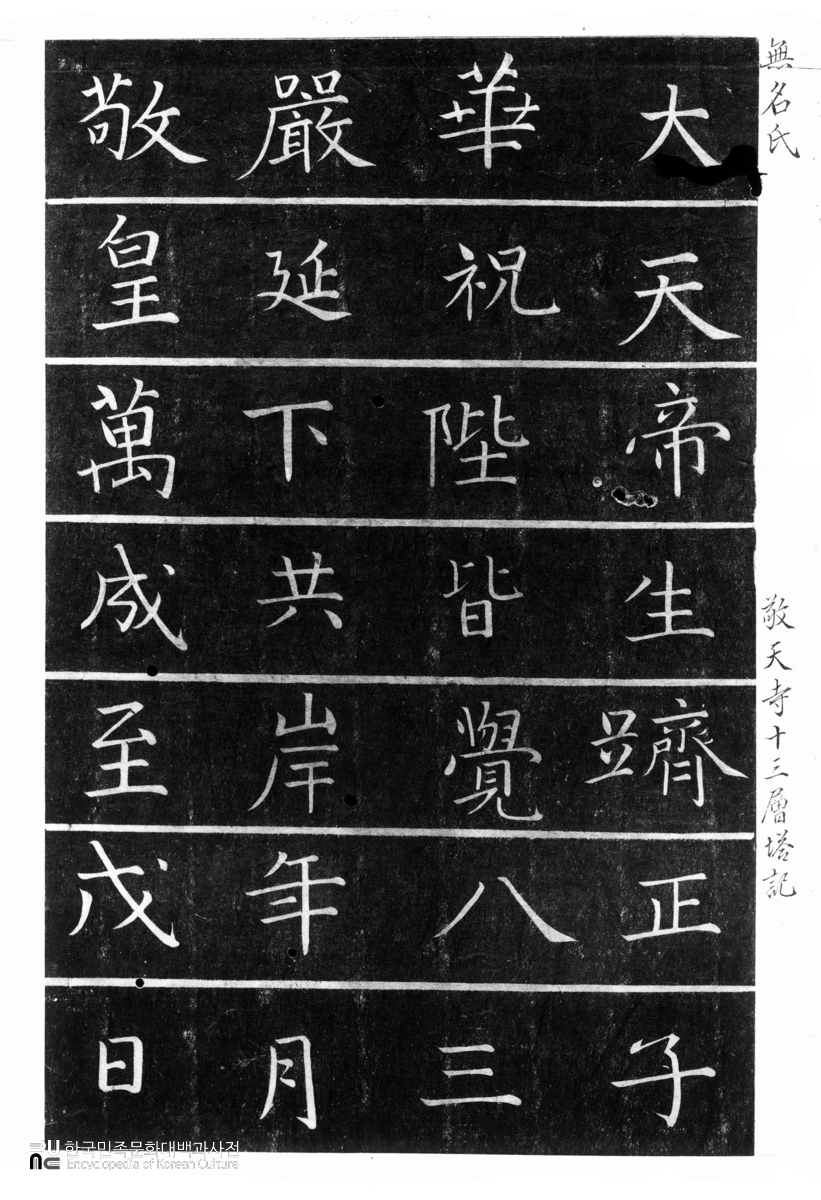 無名氏
敬天寺十三層塔記
大華嚴敬
天祝延皇
帝陛下萬
生皆共成
躋覺岸至
正八年戊
子三月日
한국민족문화대백과사전
Encyclopedia of Korean Culture